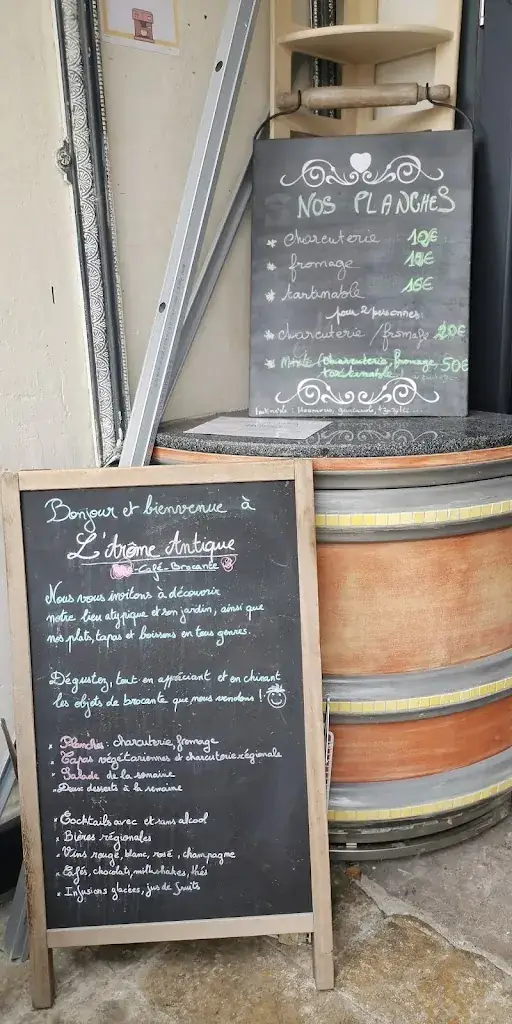 NOS PLANCHES
* charcuterie
* fromage
* tartinable 15€
pour 2 personnes:
* charcuterie / fromage 20€
* Mixte (charcuterie, fromage, 50€
tartinable
houmous, guacamole, tzatziki
Bonjour et bienvenue à
L'Arôme Antique
- Café - Brocante
Nous vous invitons à découvrir
notre lieu atypique et son jardin, ainsi que
nos plats, tapas et boissons en tous genres.
Dégustez, tout en appréciant et en chinant
les objets de brocante que nous vendons !
* Planches : charcuterie, fromage
* Tapas végétariennes et charcuterie régionale
* Salade de la semaine
* Deux desserts à la semaine
* Cocktails avec et sans alcool
* Bières régionales
* Vins rouge, blanc, rosé, champagne
* Cafés, chocolats, milkshakes, thés
* Infusions glacées, jus de fruits